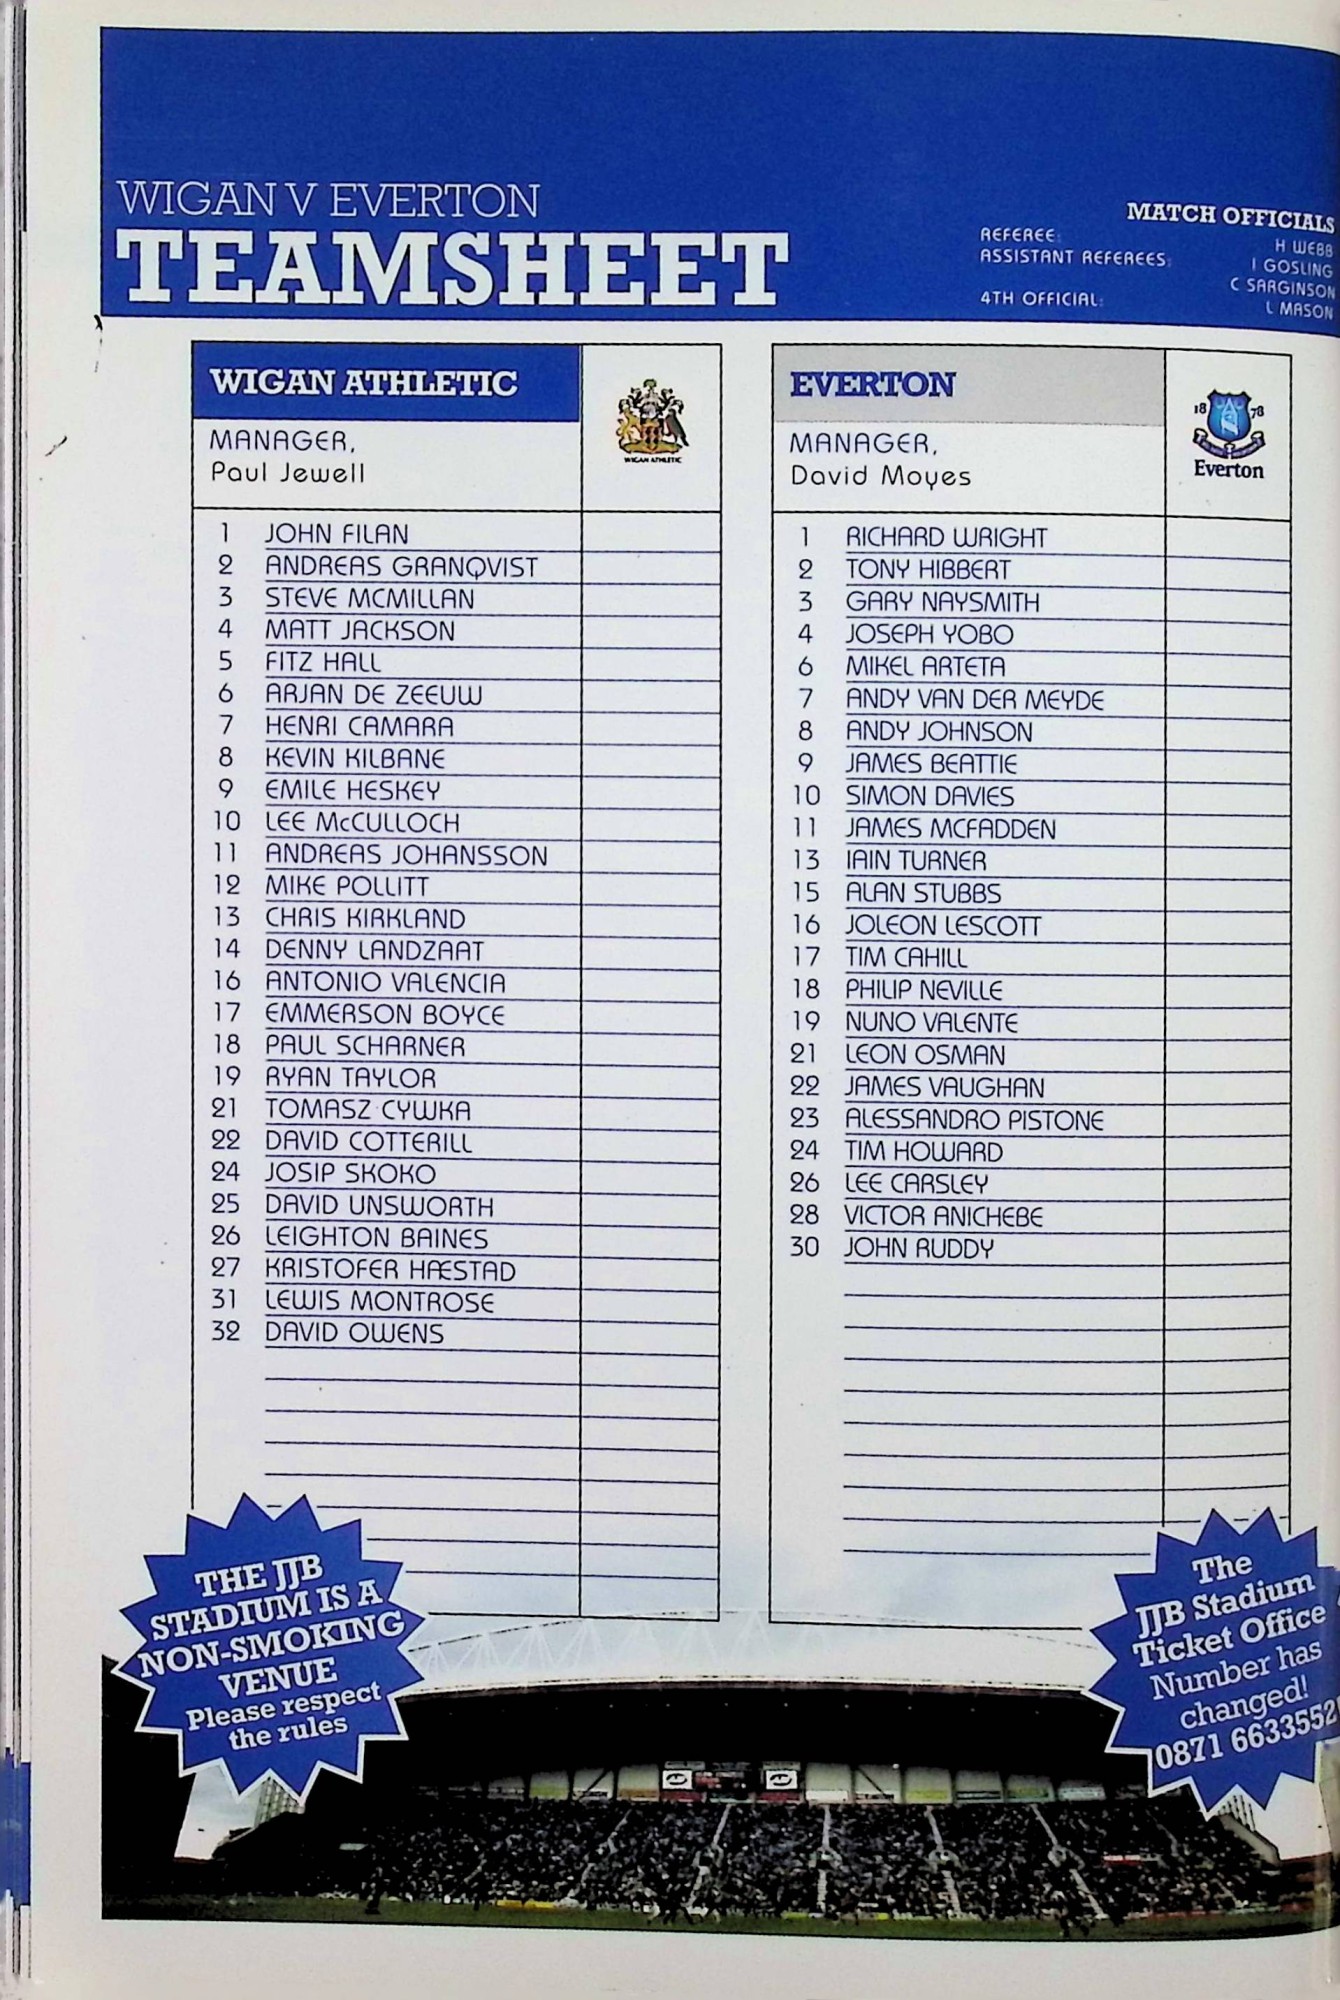 WIGAN V EVERTON
TEAMSHEET
MATCH OFFICIALS
REFEREE: H WEBB
ASSISTANT REFEREES: I GOSLING
C SARGINSON
4TH OFFICIAL: L MASON
WIGAN ATHLETIC
MANAGER,
Paul Jewell
WIGAN ATHLETIC
1 JOHN FILAN
2 ANDREAS GRANQVIST
3 STEVE MCMILLAN
4 MATT JACKSON
5 FITZ HALL
6 ARJAN DE ZEEUW
7 HENRI CAMARA
8 KEVIN KILBANE
9 EMILE HESKEY
10 LEE McCULLOCH
11 ANDREAS JOHANSSON
12 MIKE POLLITT
13 CHRIS KIRKLAND
14 DENNY LANDZAAT
16 ANTONIO VALENCIA
17 EMMERSON BOYCE
18 PAUL SCHARNER
19 RYAN TAYLOR
21 TOMASZ CYWKA
22 DAVID COTTERILL
24 JOSIP SKOKO
25 DAVID UNSWORTH
26 LEIGHTON BAINES
27 KRISTOFER HÆSTAD
31 LEWIS MONTROSE
32 DAVID OWENS
EVERTON
MANAGER,
David Moyes
18 78
Everton
1 RICHARD WRIGHT
2 TONY HIBBERT
3 GARY NAYSMITH
4 JOSEPH YOBO
6 MIKEL ARTETA
7 ANDY VAN DER MEYDE
8 ANDY JOHNSON
9 JAMES BEATTIE
10 SIMON DAVIES
11 JAMES MCFADDEN
13 IAIN TURNER
15 ALAN STUBBS
16 JOLEON LESCOTT
17 TIM CAHILL
18 PHILIP NEVILLE
19 NUNO VALENTE
21 LEON OSMAN
22 JAMES VAUGHAN
23 ALESSANDRO PISTONE
24 TIM HOWARD
26 LEE CARSLEY
28 VICTOR ANICHEBE
30 JOHN RUDDY
THE JJB
STADIUM IS A
NON-SMOKING
VENUE
Please respect
the rules
The
JJB Stadium
Ticket Office
Number has
changed!
0871 6633552